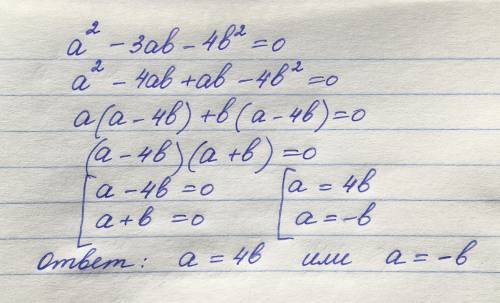 a² - 3ab - 4b² = 0
a² - 4ab + ab - 4b² = 0
a(a - 4b) + b(a - 4b) = 0
(a - 4b)(a + b) = 0
[a - 4b = 0 [a = 4b
a + b = 0 a = -b
ответ: a = 4b или a = -b